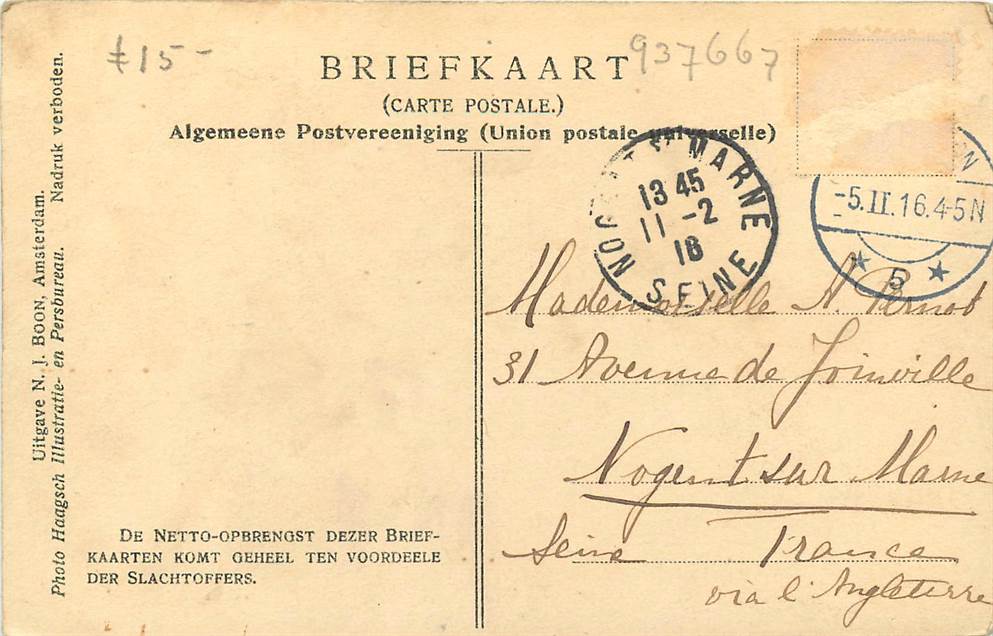 £15-
937667
BRIEFKAART
(CARTE POSTALE.)
Algemeene Postvereeniging (Union postale universelle)
NOGENT S/ MARNE
13 45
11 -2
16
SEINE
-5.II.16.4-5N
5
Mademoiselle N.
31 Avenue de Joinville
Nogent sur Marne
Seine France
via l'Angleterre
DE NETTO-OPBRENGST DEZER BRIEF-
KAARTEN KOMT GEHEEL TEN VOORDEELE
DER SLACHTOFFERS.
Uitgave N. J. BOON, Amsterdam.
Photo Haagsch Illustratie- en Persbureau. Nadruk verboden.